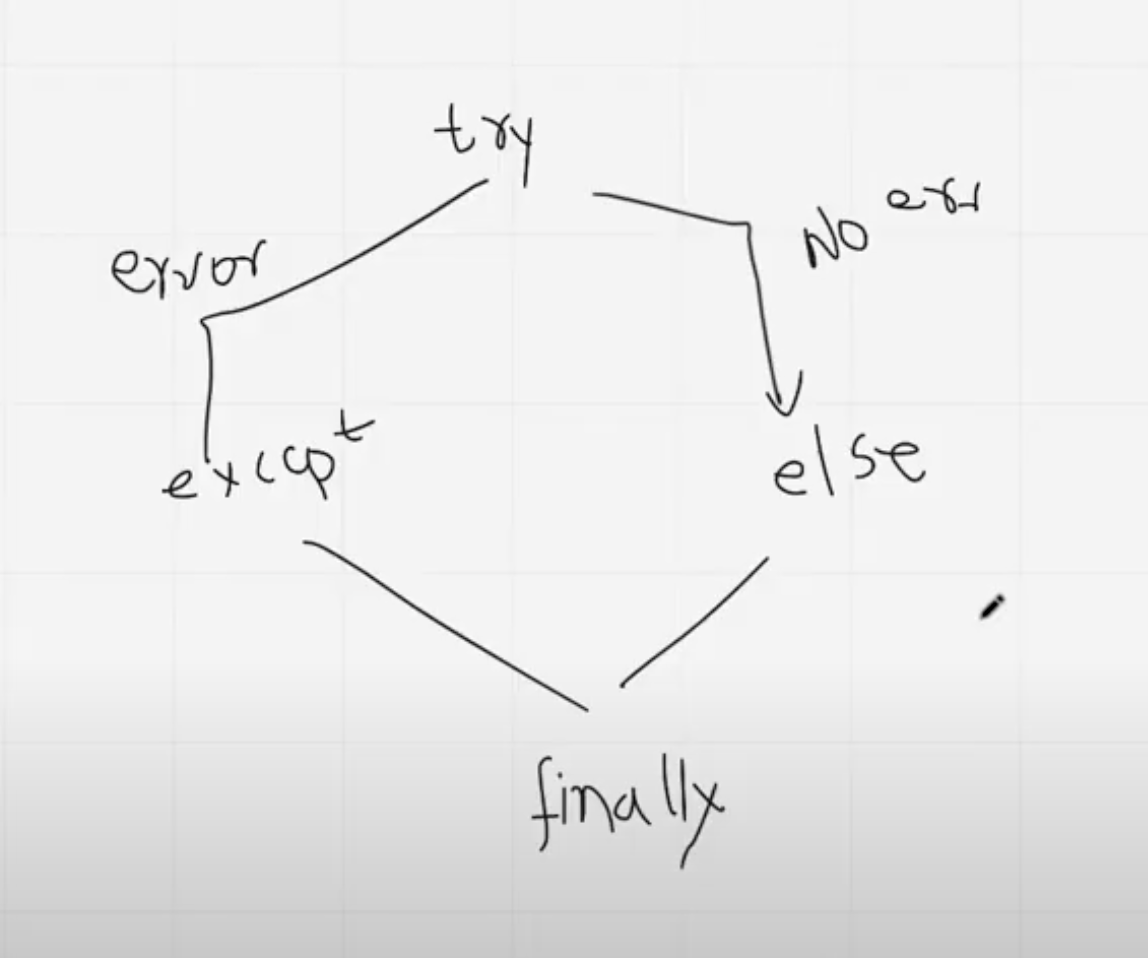 try
No err
error
except
else
finally